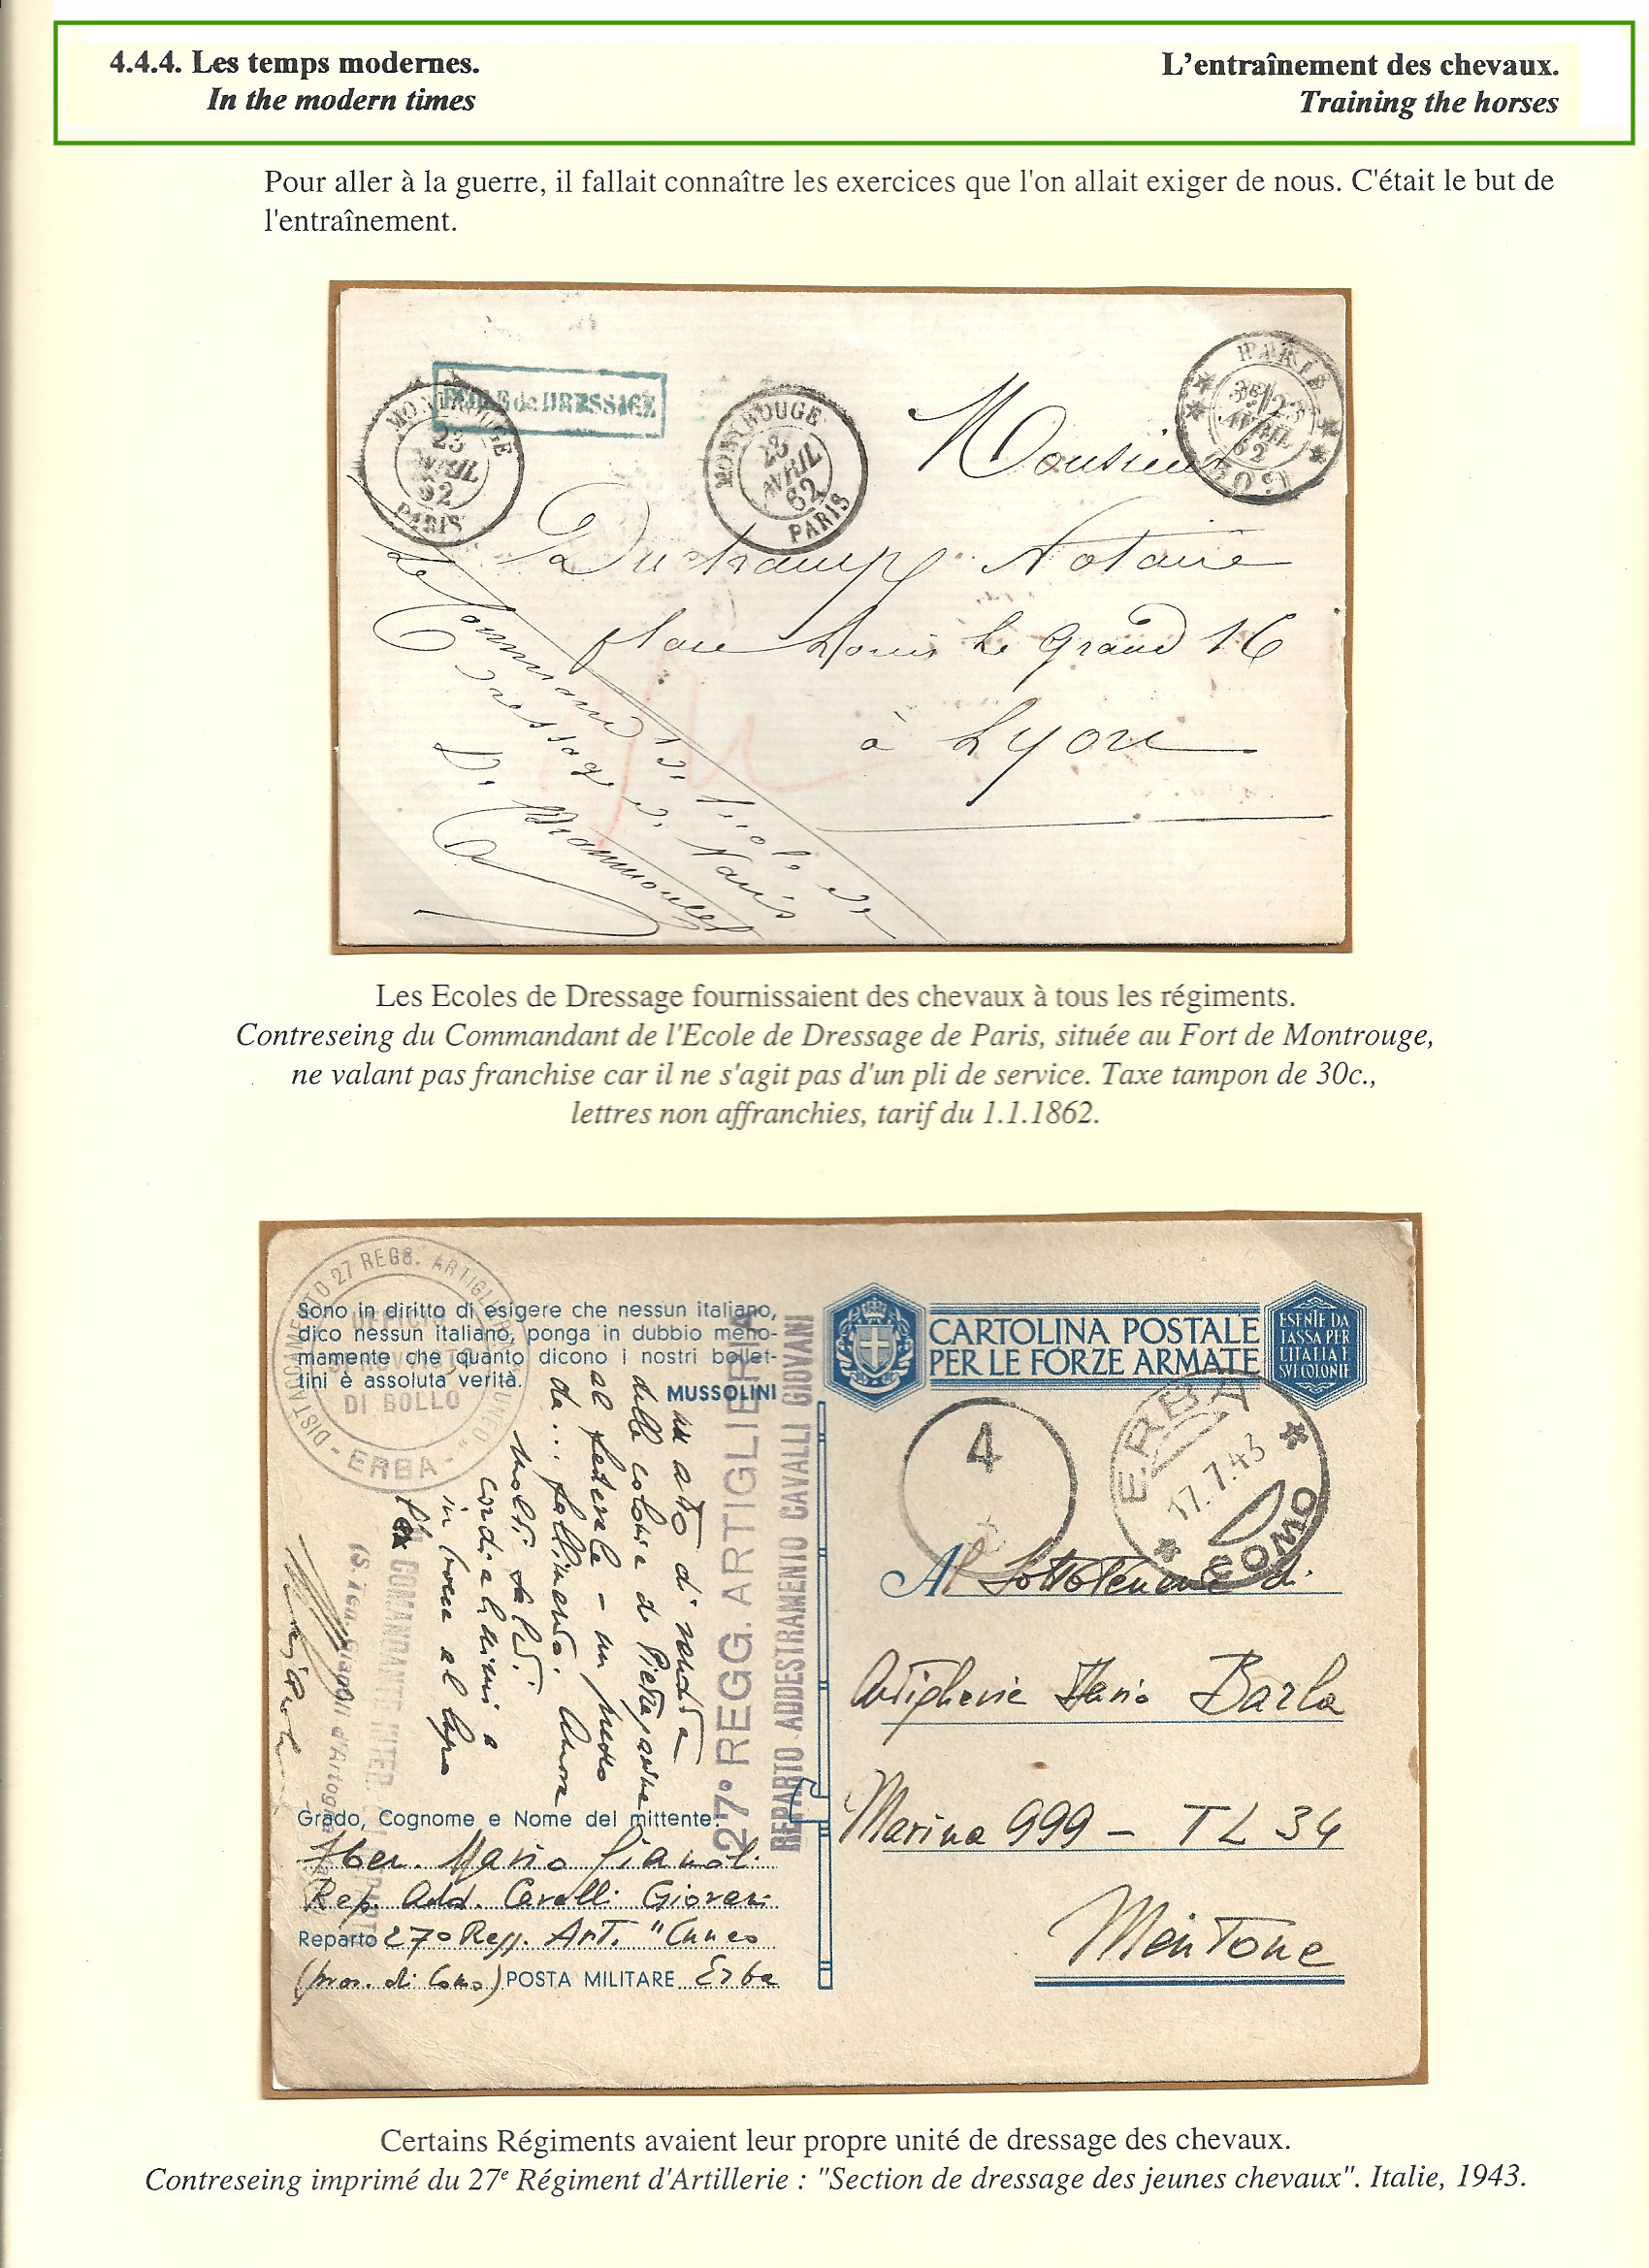 4.4.4. Les temps modernes.
In the modern times
L'entraînement des chevaux.
Training the horses
Pour aller à la guerre, il fallait connaître les exercices que l'on allait exiger de nous. C'était le but de
l'entraînement.
ECOLE de DRESSAGE
MONTROUGE
23
AVRIL
62
PARIS
MONTROUGE
23
AVRIL
62
PARIS
PARIS
3E/23
AVRIL
62
(60)
Monsieur
Duchamp Notaire
place Louis le Grand 16
à Lyon
Le Command de l'École de
Dressage de Paris
Les Ecoles de Dressage fournissaient des chevaux à tous les régiments.
Contreseing du Commandant de l'Ecole de Dressage de Paris, située au Fort de Montrouge,
ne valant pas franchise car il ne s'agit pas d'un pli de service. Taxe tampon de 30c.,
lettres non affranchies, tarif du 1.1.1862.
DISTACCAMENTO 27 REGG. ARTIGLIERIA "CUNEO"
UFFICIO
SPROVVISTO
DI BOLLO
- ERBA -
Sono in diritto di esigere che nessun italiano,
dico nessun italiano, ponga in dubbio meno-
mamente che quanto dicono i nostri bollet-
tini è assoluta verità.
MUSSOLINI
CARTOLINA POSTALE
PER LE FORZE ARMATE
ESENTE DA
TASSA PER
L'ITALIA E
SUE COLONIE
4
ERBA
17.7.43
COMO
27° REGG. ARTIGLIERIA
REPARTO ADDESTRAMENTO CAVALLI GIOVANI
della colonia di Pietra
al federale - un
da... fallimento. Ancora
molti saluti
cordialissimi e
in bocca al lupo
COMANDANTE INTER.
Al Sottotenente di
Artiglieria Ilario Barla
Marina 999 - TL 34
Mentone
Grado, Cognome e Nome del mittente:
Mario Gianoli
Rep. Add. Cavalli Giovani
Reparto 27° Regg. Art. "Cuneo
(prov. di Como) POSTA MILITARE Erba
Certains Régiments avaient leur propre unité de dressage des chevaux.
Contreseing imprimé du 27e Régiment d'Artillerie : "Section de dressage des jeunes chevaux". Italie, 1943.